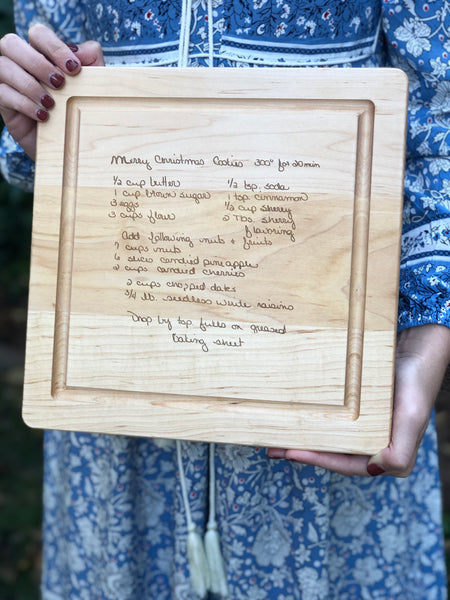 Merry Christmas Cookies 300° for 20 min
½ cup butter
1 cup brown sugar
3 eggs
3 cups flour
½ tsp. soda
1 tsp. cinnamon
½ cup sherry
2 Tbs. sherry
flavoring
Add following nuts & fruits
7 cups nuts
6 slices candied pineapple
2 cups candied cherries
2 cups chopped dates
3/4 lb. seedless white raisins
Drop by tsp fulls on greased
Baking sheet